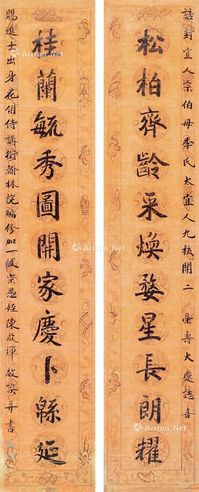 誥封宜人宗伯母李氏太宜人九秩開二榮壽大慶誌喜
松柏齊齡采煥婺星長朗耀
桂蘭毓秀圖開家慶卜緜延
賜進士出身花翎侍講銜翰林院編修加級宗愚姪陳啟